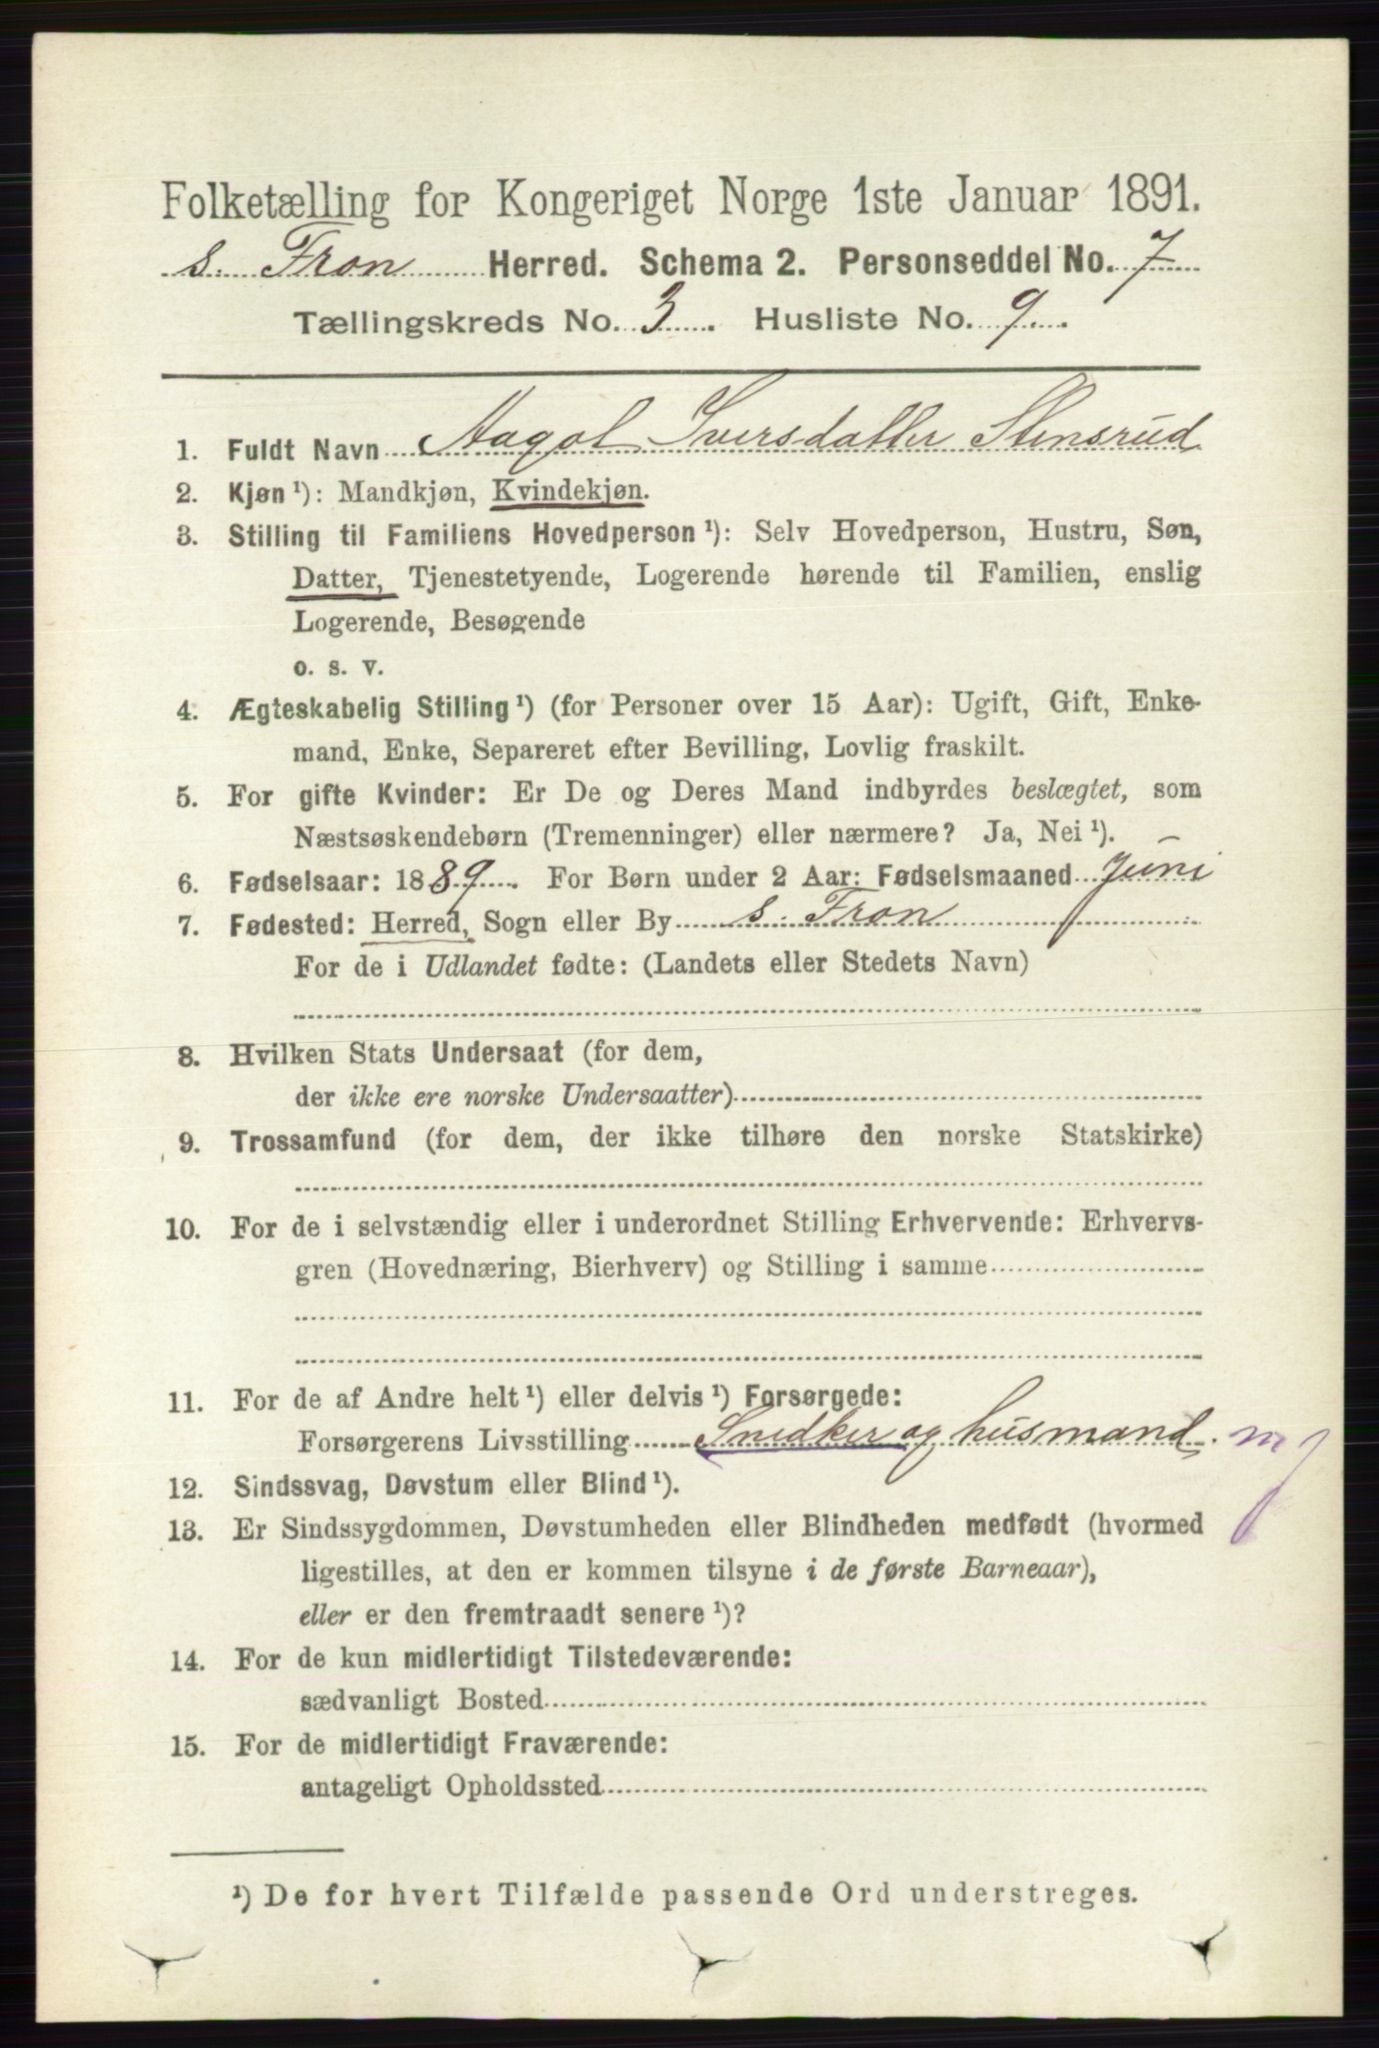 Folketælling for Kongeriget Norge 1ste Januar 1891.
s. Fron Herred. Schema 2. Personseddel No. 7
Tællingskreds No. 3. Husliste No. 9.
1. Fuldt Navn Aagot Iversdatter Stensrud
2. Kjøn ¹): Mandkjøn, Kvindekjøn.
3. Stilling til Familiens Hovedperson ¹): Selv Hovedperson, Hustru, Søn,
Datter, Tjenestetyende, Logerende hørende til Familien, enslig
Logerende, Besøgende
o. s. v.
4. Ægteskabelig Stilling ¹) (for Personer over 15 Aar): Ugift, Gift, Enke-
mand, Enke, Separeret efter Bevilling, Lovlig fraskilt.
5. For gifte Kvinder: Er De og Deres Mand indbyrdes beslægtet, som
Næstsøskendebørn (Tremenninger) eller nærmere? Ja, Nei ¹).
6. Fødselsaar: 1889. For Børn under 2 Aar: Fødselsmaaned Juni
7. Fødested: Herred, Sogn eller By s. Fron
For de i Udlandet fødte: (Landets eller Stedets Navn)
8. Hvilken Stats Undersaat (for dem,
der ikke ere norske Undersaatter)
9. Trossamfund (for dem, der ikke tilhøre den norske Statskirke)
10. For de i selvstændig eller i underordnet Stilling Erhvervende: Erhvervs-
gren (Hovednæring, Bierhverv) og Stilling i samme
11. For de af Andre helt ¹) eller delvis ¹) Forsørgede:
Forsørgerens Livsstilling Snedker og husmand. m j
12. Sindssvag, Døvstum eller Blind ¹).
13. Er Sindssygdommen, Døvstumheden eller Blindheden medfødt (hvormed
ligestilles, at den er kommen tilsyne i de første Barneaar),
eller er den fremtraadt senere ¹)?
14. For de kun midlertidigt Tilstedeværende:
sædvanligt Bosted
15. For de midlertidigt Fraværende:
antageligt Opholdssted
¹) De for hvert Tilfælde passende Ord understreges.